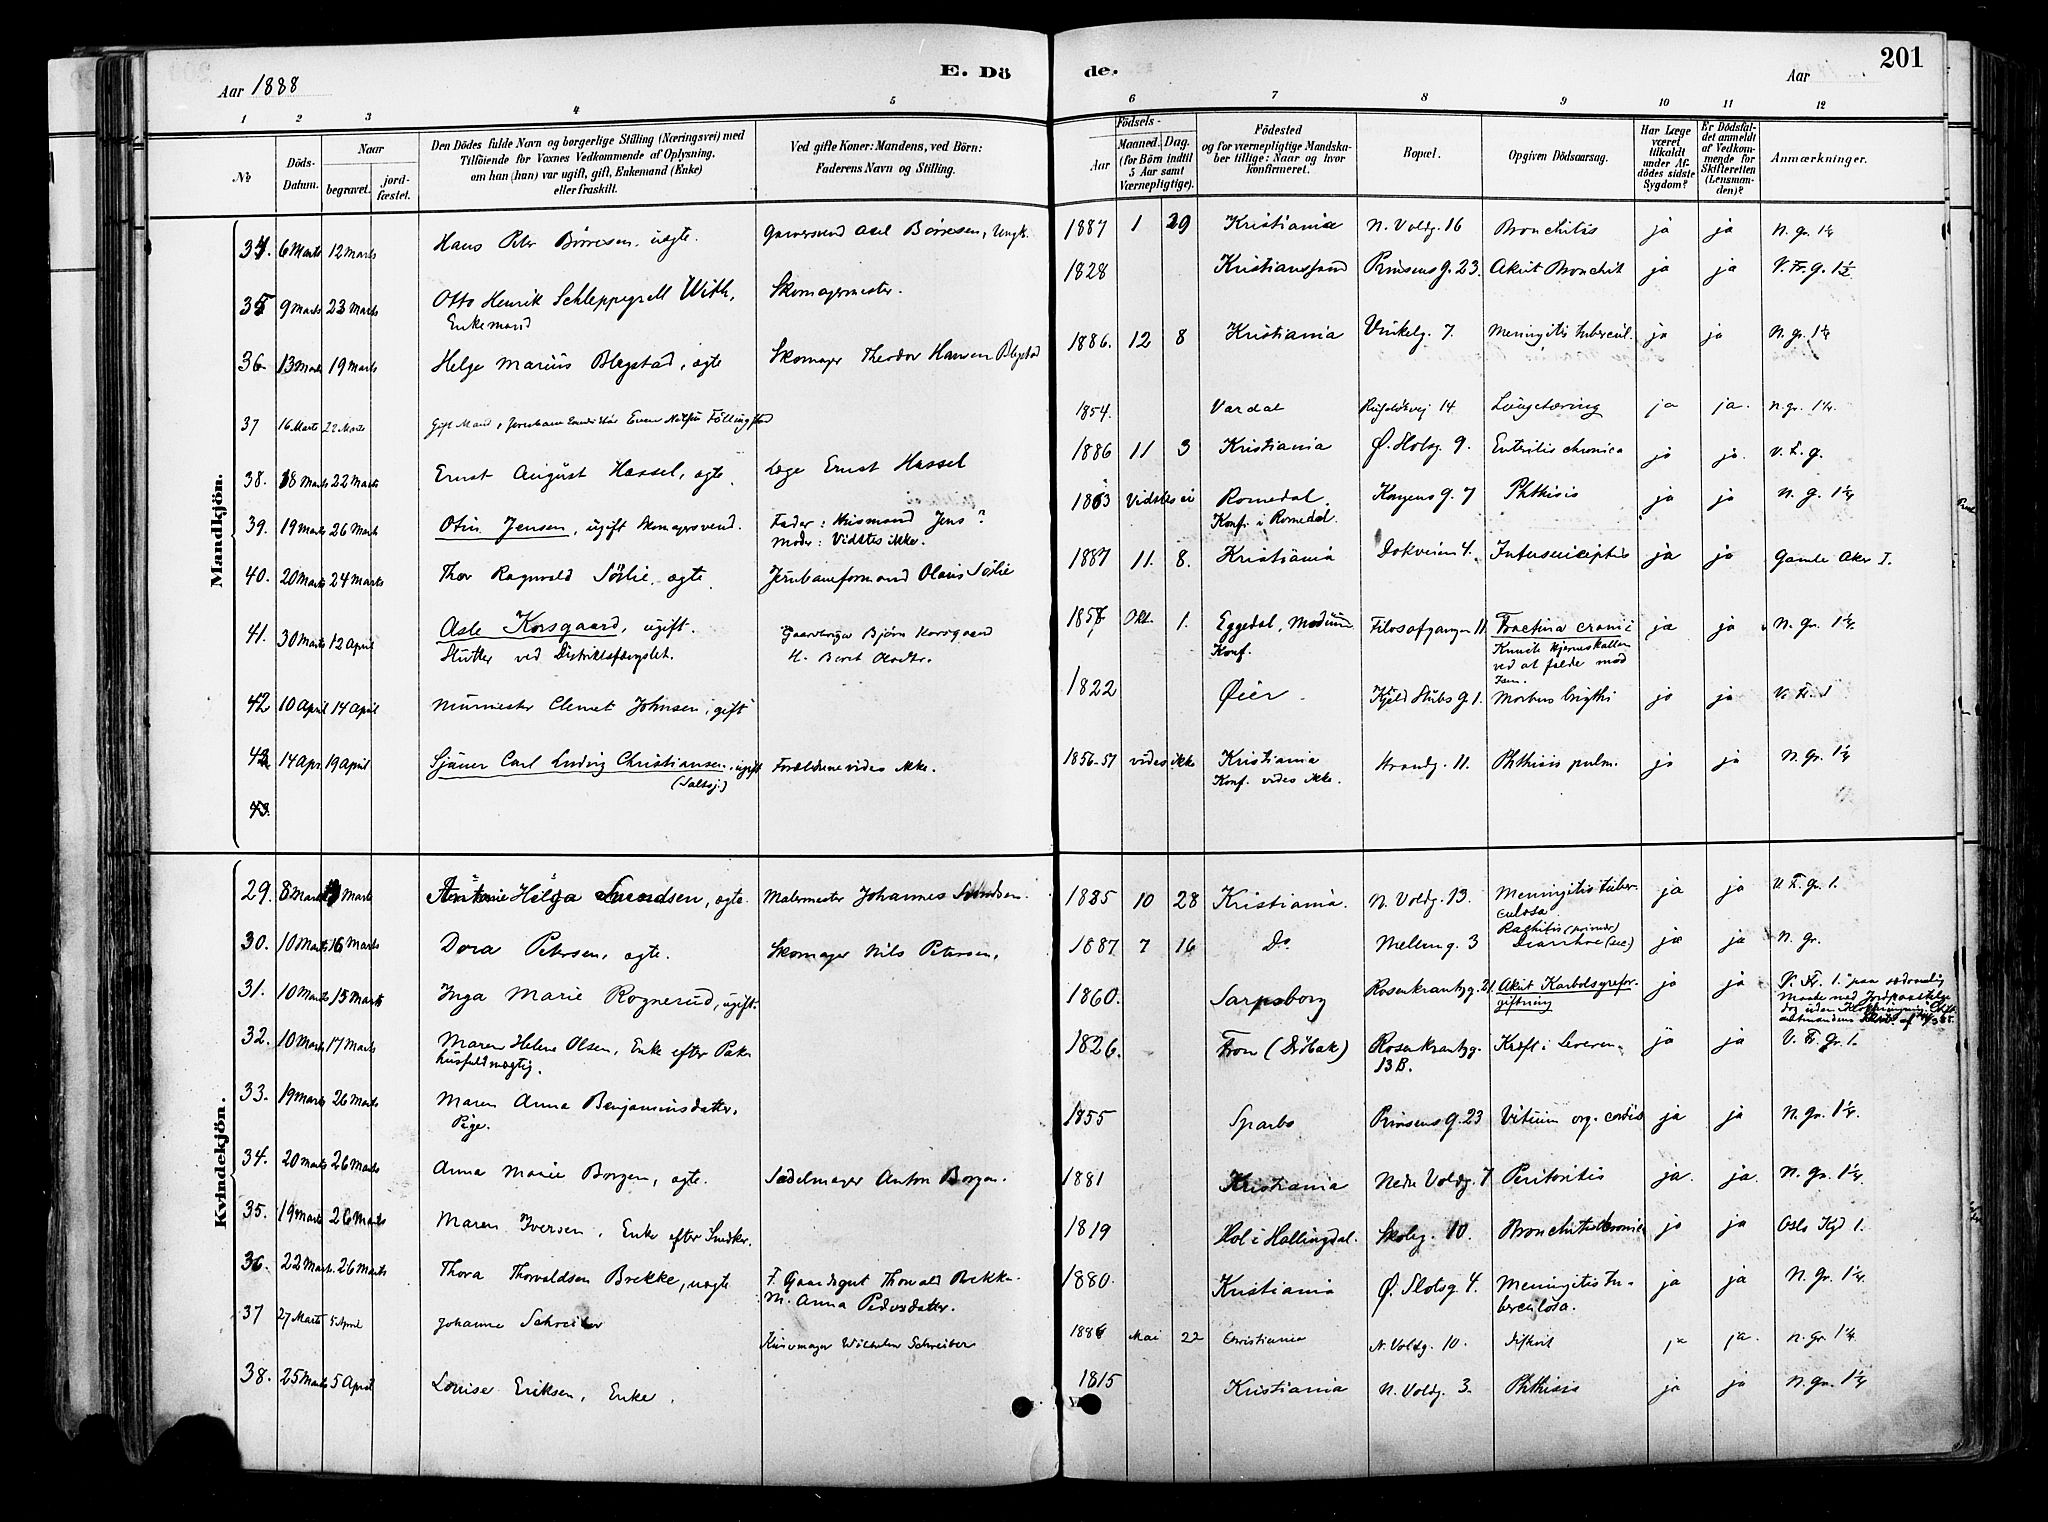 201
E. Dö de.
Aar 1888
Aar
1 2 3 4 5 6 7 8 9 10 11 12
No
Döds-Datum.
Naar
begravet.
jord-fæstet.
Den Dödes fulde Navn og borgerlige Stilling (Næringsvei) med
Tilföiende for Voxnes Vedkommende af Oplysning,
om han (hun) var ugift, gift, Enkemand (Enke)
eller fraskilt.
Ved gifte Koner: Mandens, ved Börn:
Faderens Navn og Stilling.
Födsels-
Aar
Maaned. Dag.
(for Börn indtil
5 Aar samt
Værnepligtige).
Födested
og for værnepligtige Mandska-
ber tillige: Naar og hvor
konfirmeret.
Bopæl.
Opgiven Dödsaarsag.
Har Læge
været
tilkaldt
under Af-
dödes sidste
Sygdom?
Er Dödsfal-
det anmeldt
af Vedkom-
mende for
Skifteretten
(Lensman-
den)?
Anmærkninger.
Mandkjön.
34. 6 Marts 12 Marts Hans Peter Börresen, uægte. Axel Börresen, Ungk. 1887 1 29 Kristiania N. Voldg. 16 Bronchitis ja ja N. gr. 1 1/4
35 9 Marts 23 Marts Otto Henrik Schleppegrell With, Skomagermester. 1828 Kristianssand Prinsens g. 23. Akut Bronchit ja ja V. Fr. g. 1 1/2
Enkemand
36 13 Marts 19 Marts Helge Marius Blegstad, ægte Skomager Theodor Hansen Blegstad 1886. 12 8 Kristiania Vinkelg. 7. Meningitis tubercul. ja ja N. gr. 1 1/4
37 16 Marts 22 Marts Gift Mand, Even 1854. Vardal 14. Lungetæring ja ja. N. gr. 1 1/4.
38. 18 Marts 22 Marts Ernst August Hassel, ægte. Læge Ernst Hassel 1886 11 3 Kristiania Ø. Slotsg. 9. Enteritis chronica ja ja. V. F. g.
39. 19 Marts 26 Marts Otin Jensen, ugift Skomagersvend. Fader: Husmand Jens? 1863 Vidstes ei Romedal. Kongens g. 7 Phthisis ja ja N. g. 1 1/4
Moder: Vidstes ikke. Konf. i Romedal.
40. 20 Marts 24 Marts Thor Ragnvald Sörlie, ægte. Jernbaneformand Olaus Sörlie 1887 11. 8. Kristiania Dokveien 4. ja ja Gamle Aker I.
41. 30 Marts 12 April Asle Korsgaard, ugift. Gaardbruger Björn Korsgaard Okt. 1. Eggedal, Modum Filosofgangen 11. Fractura cranii ja ja N. gr. 1 1/4.
Slutter ved Distriktsfængslet. H. Beret Konf. Knuste hjerneskallen
ved at falde mod
42 10 April 14 April Murmester Clemet Johnsen, gift 1822 Øier. Kjeld Stubs g. 1. Morbus brigthi ja ja V. Fr. 1
43 14 Apr. 19 April Sjauer Carl Ludvig Christiansen, ugift Forældrene vides ikke. 1856-57 vides ikke Kristiania Strandg. 11. Phthisis pulm. ja ja N. Gr. 1 1/4
(Saltsj.) Konf. vides ikke.
43.
Kvindekjön.
29. 8 Marts Marts Antonie Helga Svendsen, ægte. Malermester Johannes Svendsen. 1885 10 28 Kristiania. N. Voldg. 13. Meningitis tuber-culosa. ja ja V. F. gr. 1.
30. 10 Marts 16 Marts Dora Petersen, ægte. Skomager Nils Petersen. 1887 7 16 Do Mellemg. 3 Rachitis (primær) Diarrhoe (sec) ja ja N. gr.
31. 10 Marts 15 Marts Inga Marie Rognerud, ugift. 1860. Sarpsborg Rosenkrantzg. 21. Akut Karbolsyrefor-giftning ja ja V. Fr. 1. paa sædvanlig
Maade med Jordpaakastelse
dog uden Klokkeringning.
32. 10 Marts 17 Marts Maren Helene Olsen, Enke efter Pak- 1826. Fron (Dröbak) Rosenkrantzg. 13 B. Kræft i Leveren. ja ja V. F. gr. 1.
husfuldmægtig.
33. 19 Marts 26 Marts Maren Anna Benjaminsdatter. 1855 Sparbo Prinsens g. 23 Vitium org. cordis ja ja N. gr. 1 1/4.
Pige.
34. 20 Marts 26 Marts Anna Marie Borgen, ægte. Sadelmager Anton Borgen. 1881 Kristiania Nedre Voldg. 7 Peritonitis ja. ja. N. gr. 1 1/4
35. 19 Marts 26 Marts Maren Iversen, Enke efter Snedker. 1819 Hol i Hallingdal. Skoleg. 10. Bronchitis cronica ja ja Oslo Kgd 1.
36. 22 Marts. 26 Marts Thora Thorvaldsen Brekke, uægte F. Gaardsgut Thorvald Brekke. 1880. Kristiania Ø. Slotsg. 4. Meningitis tu-berculosa. ja ja N. Gr. 1 1/4.
M. Anna Pedersdatter.
37 27 Marts 5 April Johanne Schreiber Wilhelm Schreiber 1886 Mai 22 Christiania N. Voldg. 10. Difterit ja ja. N. Gr. 1 1/4.
38. 25 Marts 5 April Louise Eriksen, Enke. 1815 Kristiania N. Voldg. 3. Phthisis ja ja N. Gr. 1 1/4